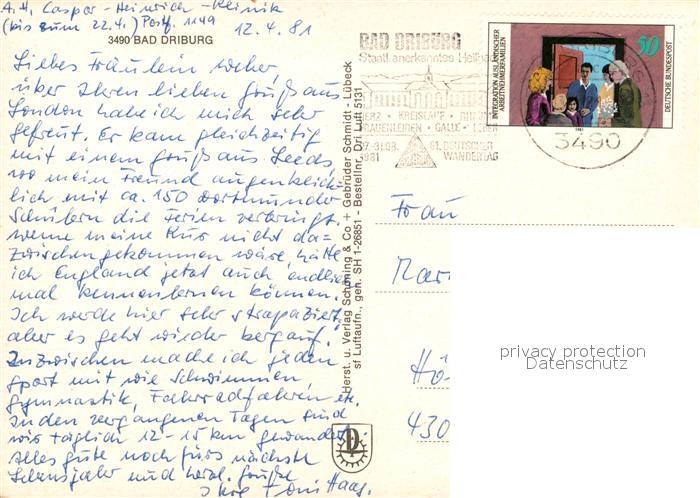 A.H. Caspar-Heinrich-Klinik
(bis zum 22.4.) Postf. 1149
12.4.81
3490 BAD DRIBURG
Liebes Fräulein Weber,
über Ihren lieben Gruß aus
London habe ich mich sehr
gefreut. Er kam gleichzeitig
mit einem Gruß aus Leeds,
wo mein Freund augenblick-
lich mit ca. 150 Dortmunder
Schülern die Ferien verbringt.
Wenn meine Kur nicht da-
zwischengekommen wäre, hätte
ich England jetzt auch endlich
mal kennenlernen können.
Ich werde hier sehr strapaziert,
aber es geht wieder bergauf.
Inzwischen mache ich jeden
Sport mit wie Schwimmen,
Gymnastik, Fahrradfahren etc.
In den vergangenen Tagen sind
wir täglich 12-15 km gewandert.
Alles gute noch fürs nächste
Lebensjahr und herzl. Grüße
Ihre Toni Haag.
Herst. u. Verlag Schöning & Co + Gebrüder Schmidt - Lübeck
sf Luftaufn., gen. SH 1-26851 - Bestellnr. Dri. Luft 5131
BAD DRIBURG
Staatl. anerkanntes Heilbad
HERZ · KREISLAUF · RHEUMA
FRAUENLEIDEN · GALLE · LEBER
27.-31.08.
1981
81. DEUTSCHER
WANDERTAG
3490
INTEGRATION AUSLÄNDISCHER
ARBEITNEHMERFAMILIEN
50
DEUTSCHE BUNDESPOST
1981
Frau
Mari
Hö
430
privacy protection
Datenschutz